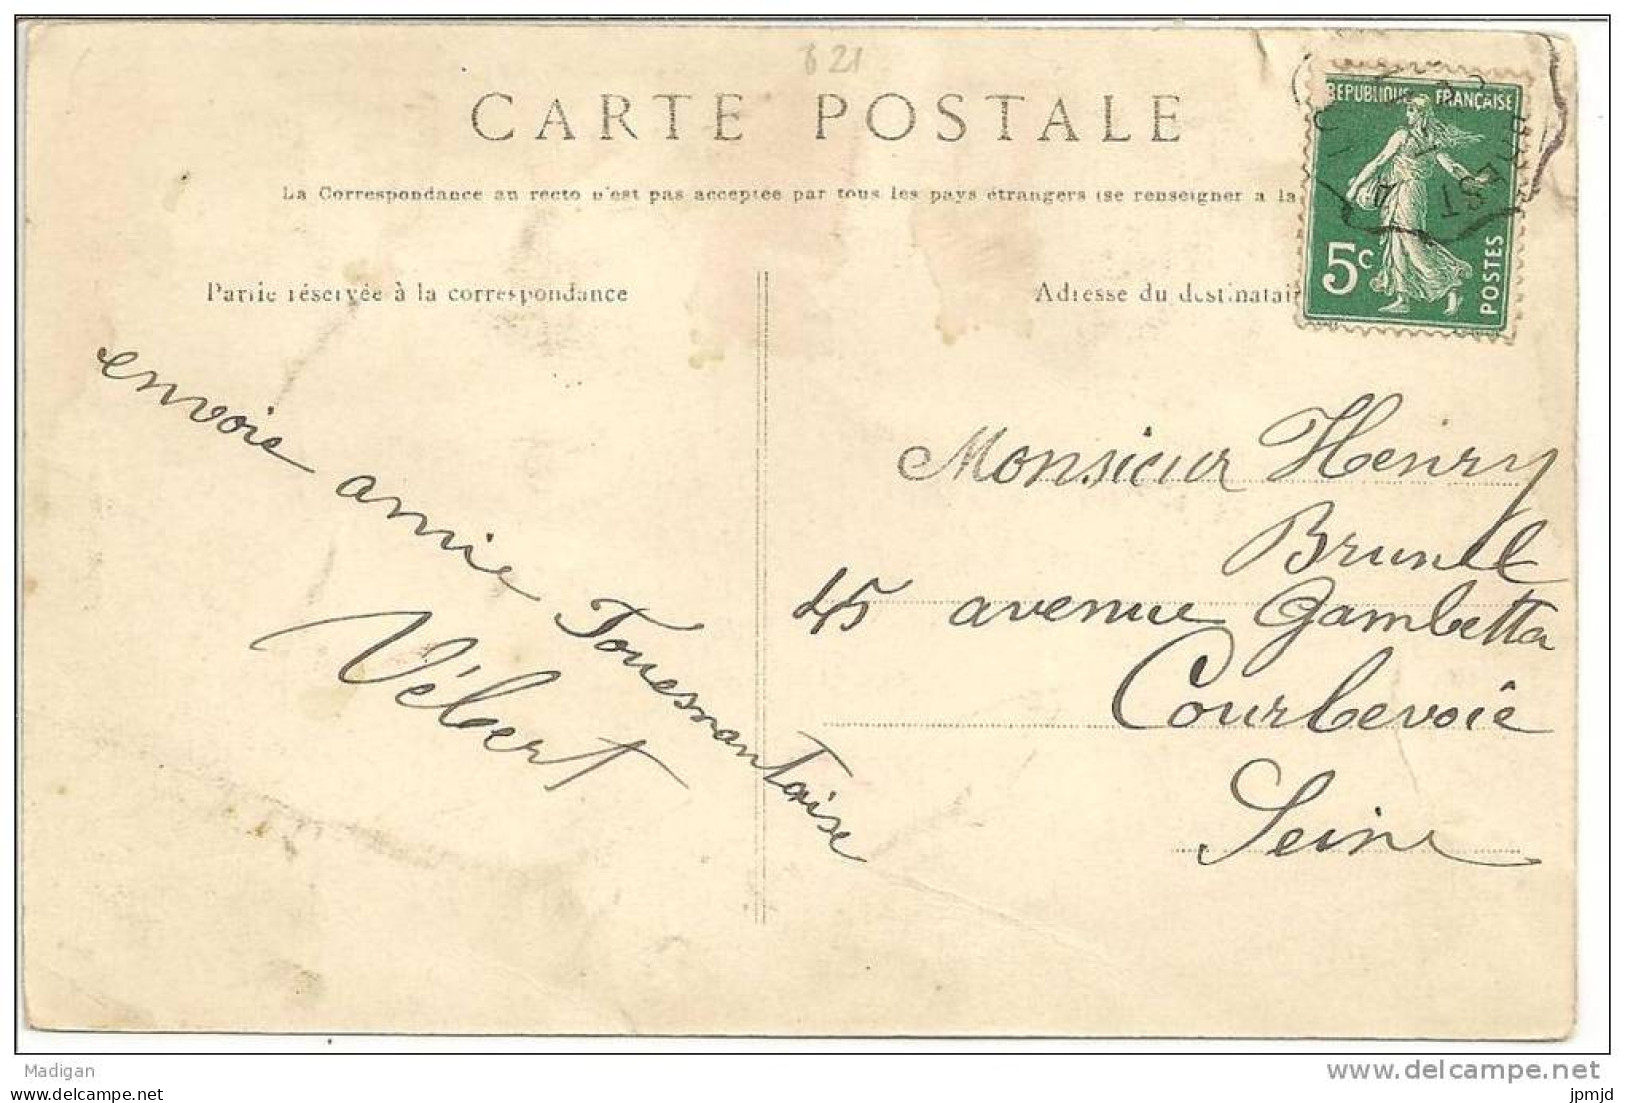 621
CARTE POSTALE
La Correspondance au recto n'est pas acceptée par tous les pays étrangers (se renseigner a la
REPUBLIQUE FRANÇAISE
5c
POSTES
BREST
Partie réservée à la correspondance
envoie amie Fouesnantaise
Vébert
Adresse du destinatair
Monsieur Henry
Brunel
45 avenue Gambetta
Courbevoie
Seine
Madigan
www.delcampe.net
jpmjd